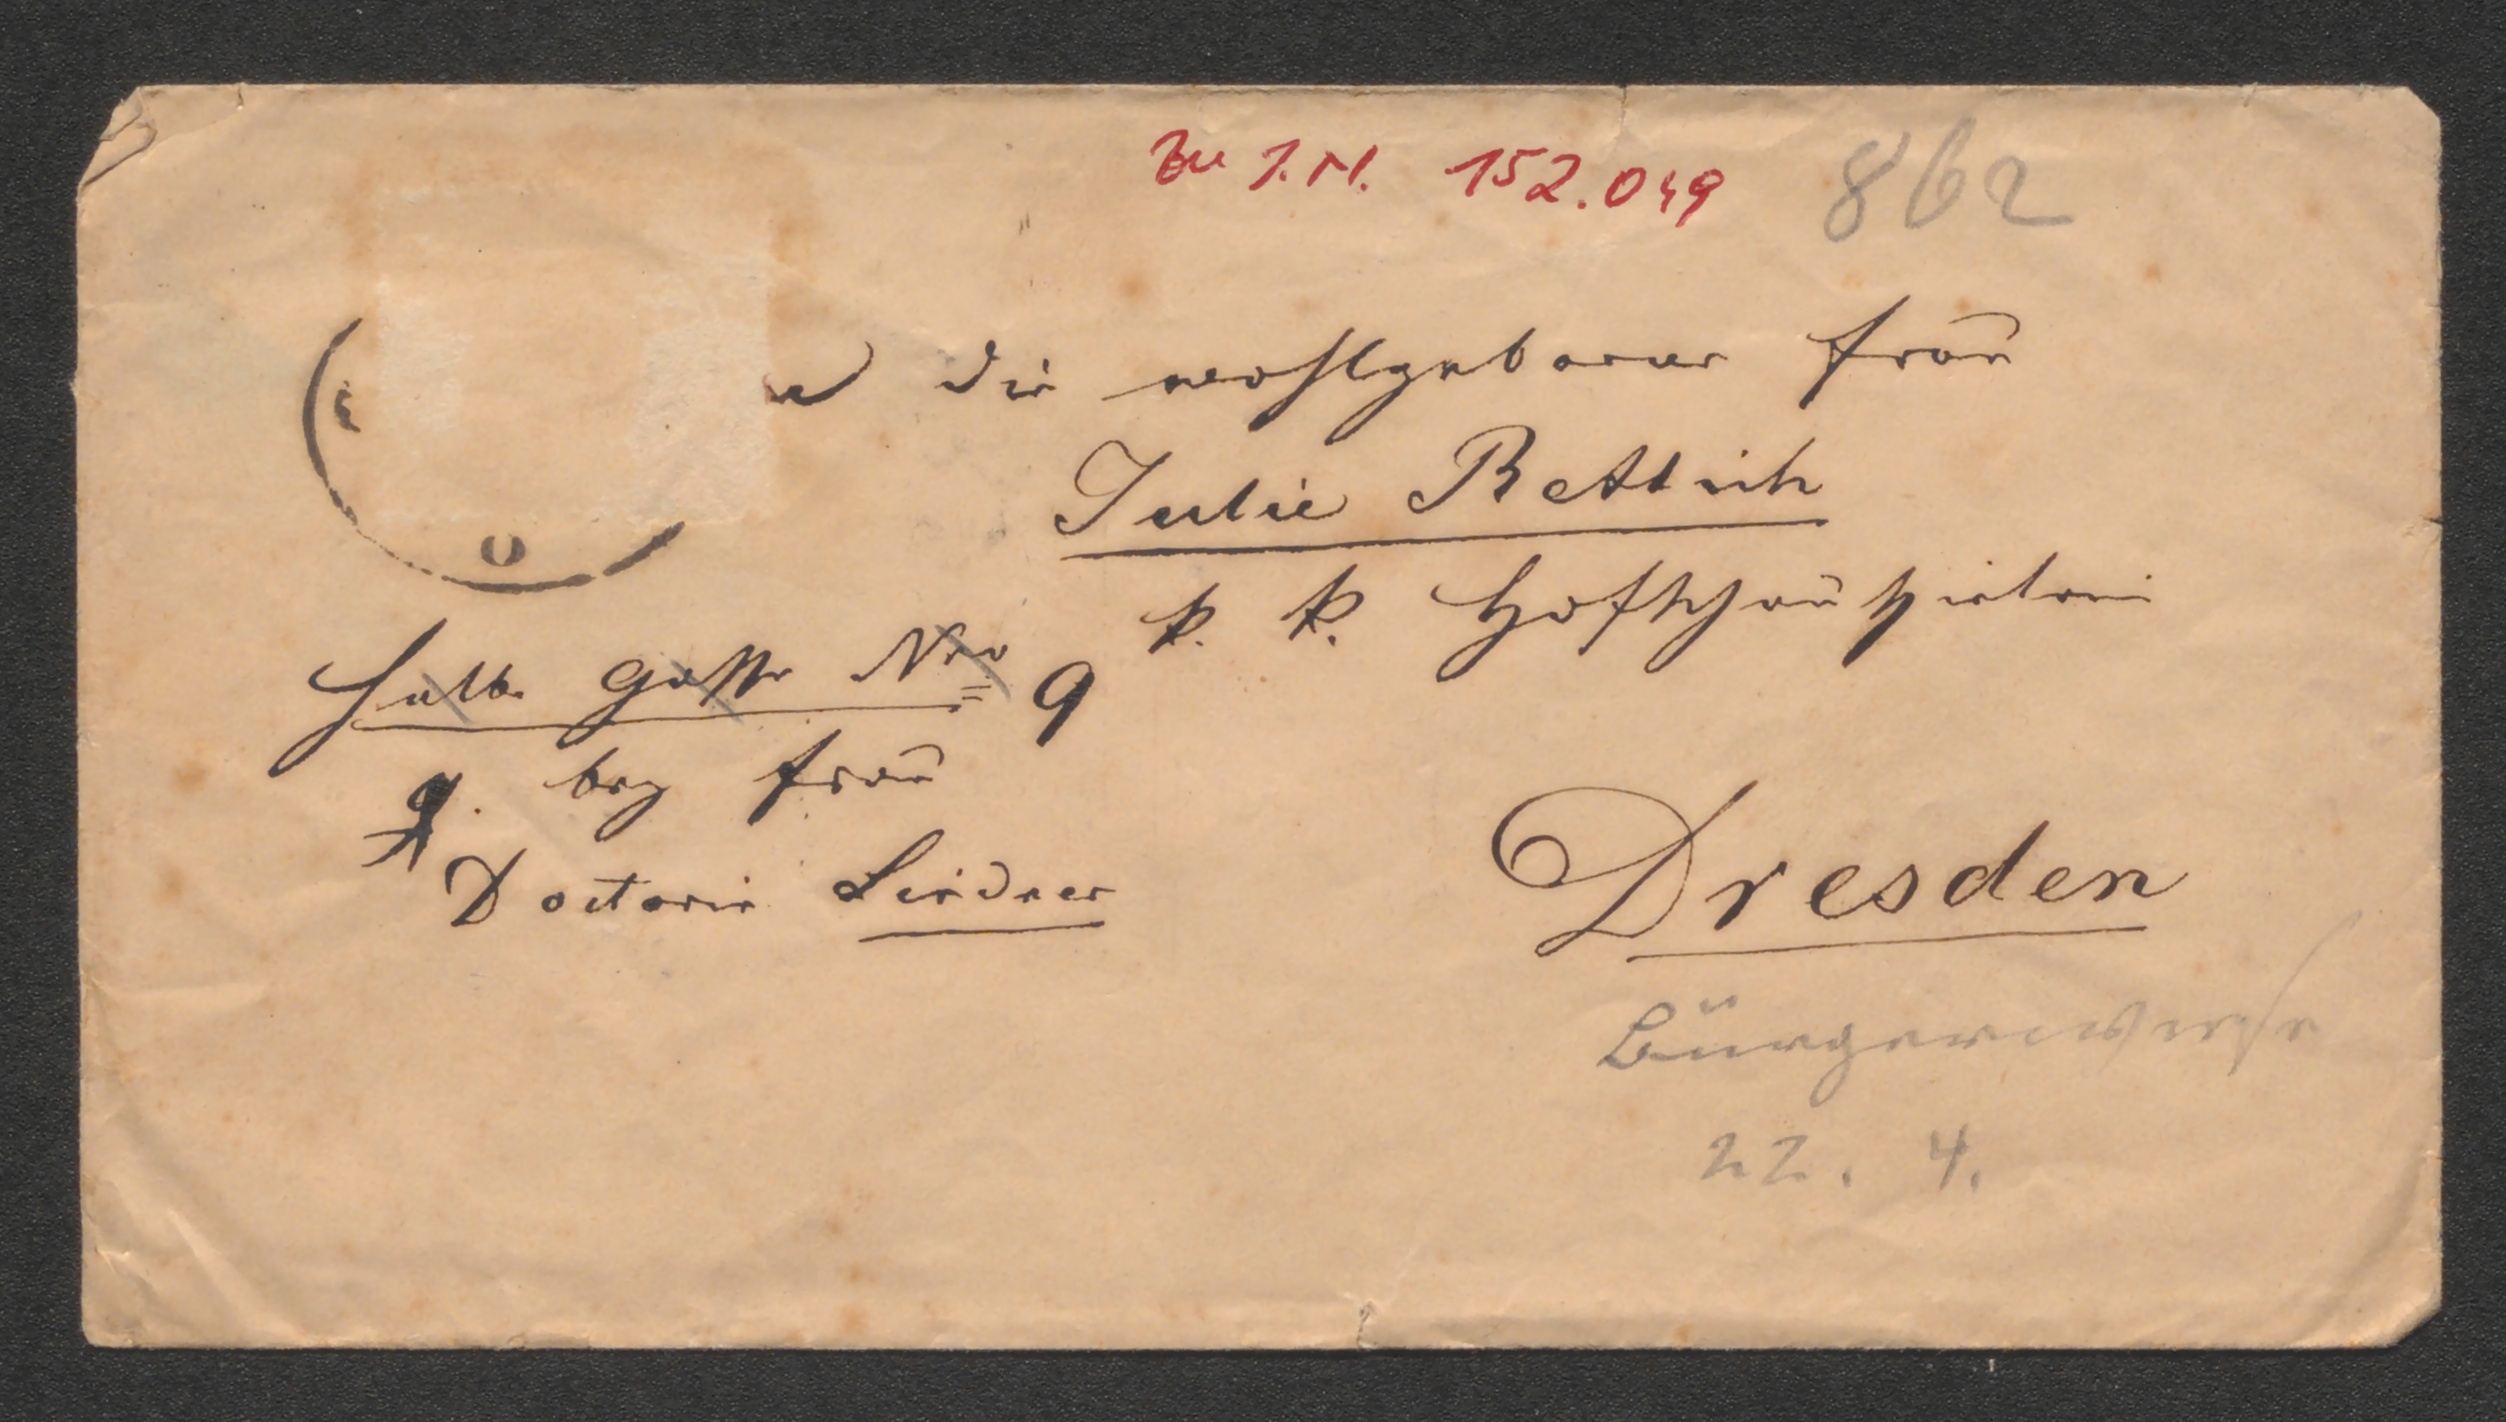 Zu I.N. 152.049 862
die wohlgeborne Frau
Julie Rettich
k. k. Hofschauspielerin
Halbe Gasse Nro 9
9. bey Frau
Doctorin Lindner
Dresden
Bürgerwiese
22. 4.